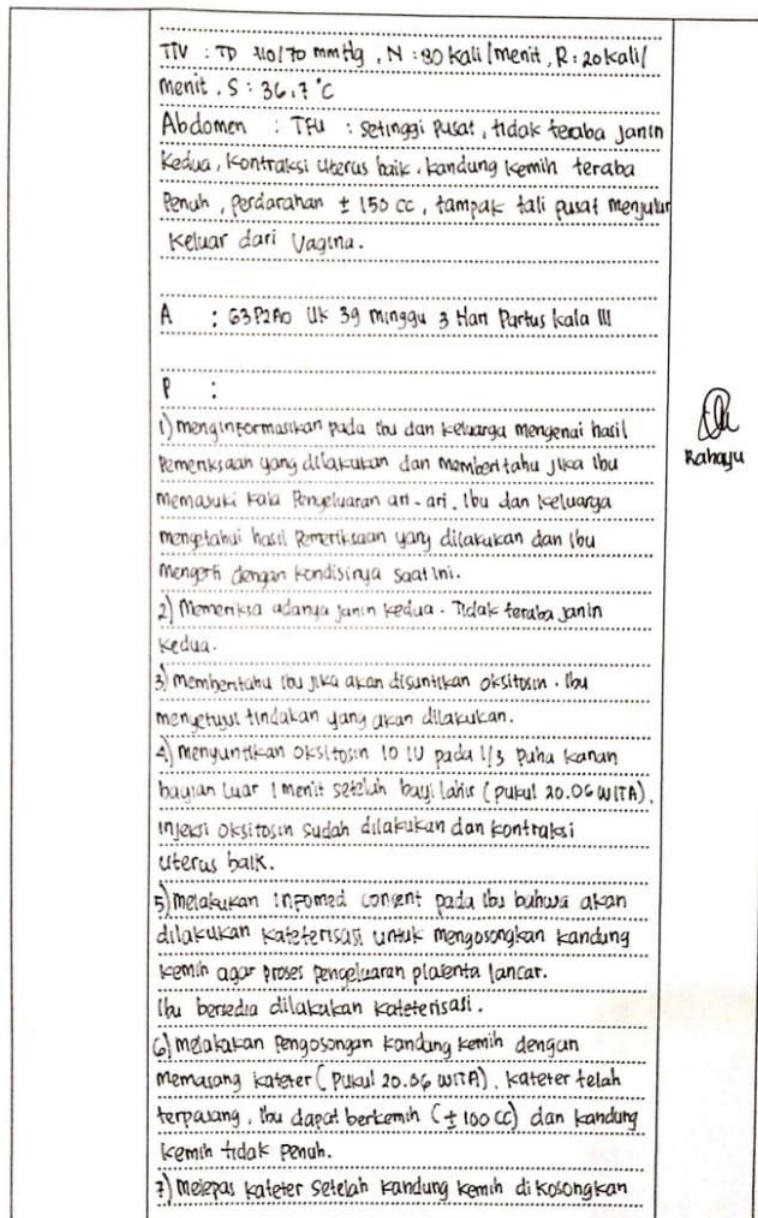 TTV : TD 110/70 mmHg, N : 80 kali/menit, R : 20 kali/
menit. S : 36,7 °C
Abdomen : TFU : setinggi pusat, tidak teraba janin
kedua, kontraksi uterus baik. kandung kemih teraba
Penuh, perdarahan ± 150 cc, tampak tali pusat menjulur
keluar dari vagina.
A : G3P2A0 UK 39 minggu 3 Hari Partus kala III
P :
1) menginformasikan pada ibu dan keluarga mengenai hasil
Pemeriksaan yang dilakukan dan memberitahu jika ibu
memasuki kala Pengeluaran ari-ari. Ibu dan keluarga
mengetahui hasil Pemeriksaan yang dilakukan dan ibu
mengerti dengan kondisinya saat ini.
Rahayu
2) Memeriksa adanya janin kedua. Tidak teraba janin
kedua.
3) Memberitahu ibu jika akan disuntikan oksitosin. Ibu
menyetujui tindakan yang akan dilakukan.
4) Menyuntikan oksitosin 10 IU pada 1/3 Paha kanan
bagian luar 1 menit setelah bayi lahir (pukul 20.06 WITA).
Injeksi oksitosin sudah dilakukan dan kontraksi
uterus baik.
5) Melakukan infomed consent pada ibu bahwa akan
dilakukan kateterisasi untuk mengosongkan kandung
kemih agar proses pengeluaran plasenta lancar.
Ibu bersedia dilakukan kateterisasi.
6) Melakukan Pengosongan kandung kemih dengan
memasang kateter (Pukul 20.06 WITA), kateter telah
terpasang, ibu dapat berkemih (± 100 cc) dan kandung
kemih tidak penuh.
7) Melepas kateter setelah kandung kemih di kosongkan